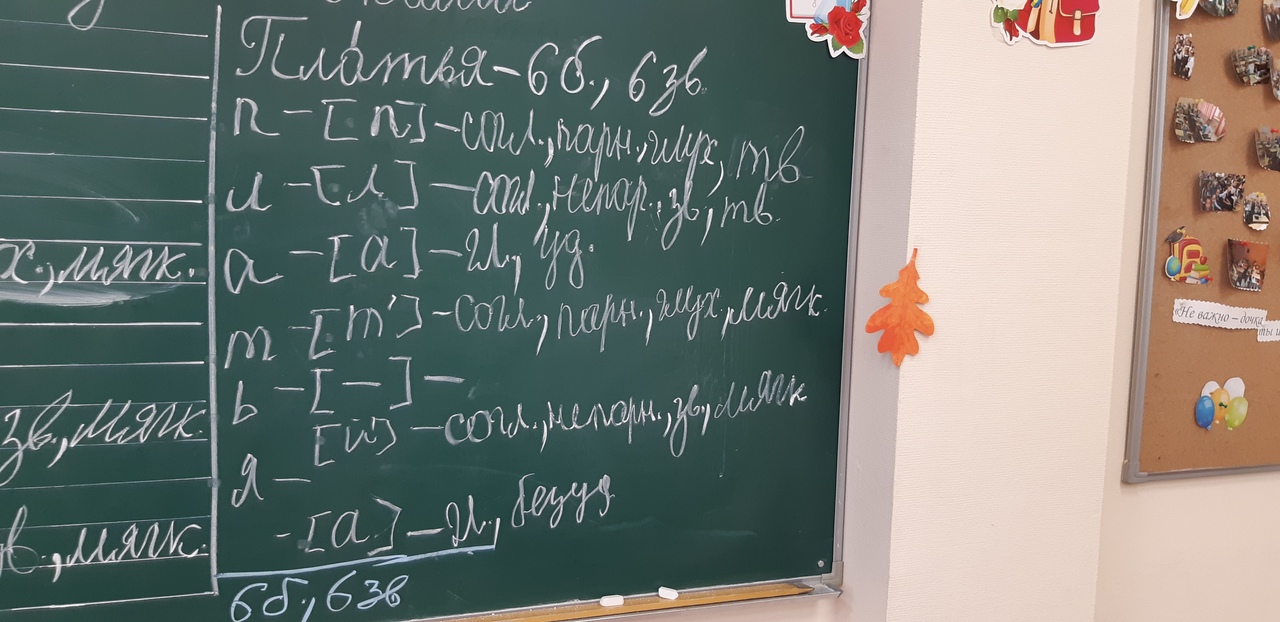 Платья – 6б., 6зв.
п – [п] – согл., парн., глух, тв
л – [л] – согл., непар., зв, тв.
х., мягк.
а – [а] – гл., уд.
т – [т'] – согл., парн., глух., мягк.
ь – [–] –
зв., мягк.
[й'] – согл., непарн., зв., мягк
я –
– [а] – гл., безуд
в., мягк.
6б., 6зв
"Не важно – дочка